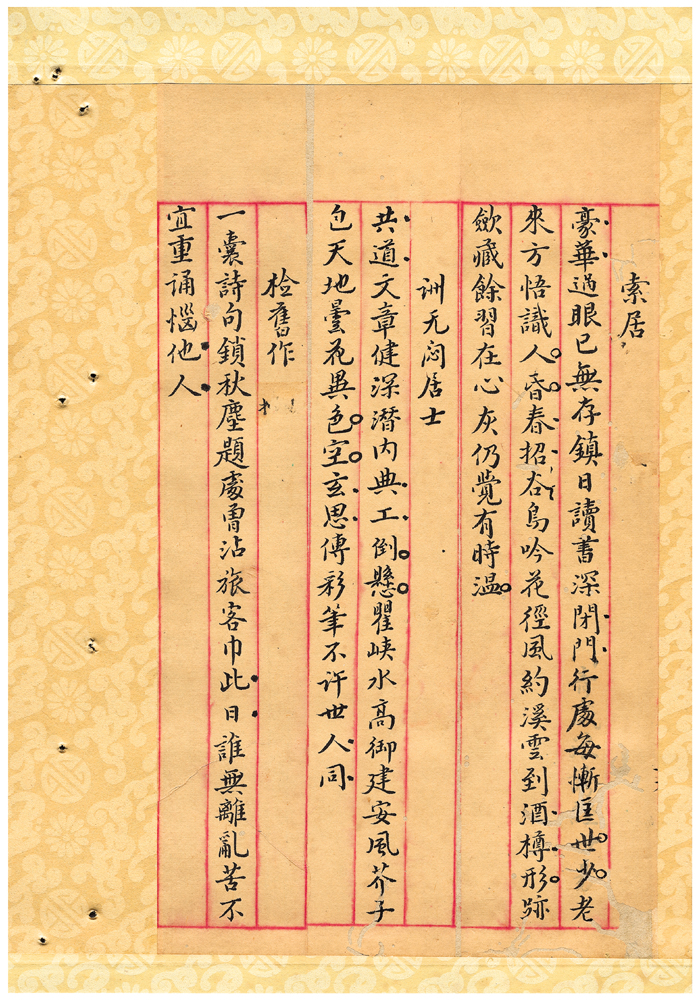 索居
豪華過眼已無存鎮日讀書深閉門行處每慚匡世少老
來方悟識人昏春招谷鳥吟花徑風約溪雲到酒樽形跡
歛藏餘習在心灰仍覺有時溫
詶无悶居士
共道文章健深潛內典工倒懸瞿峽水高御建安風芥子
包天地曇花異色空玄思傳彩筆不許世人同
檢舊作
一囊詩句鎖秋塵題處曾沾旅客巾此日誰無離亂苦不
宜重誦惱他人